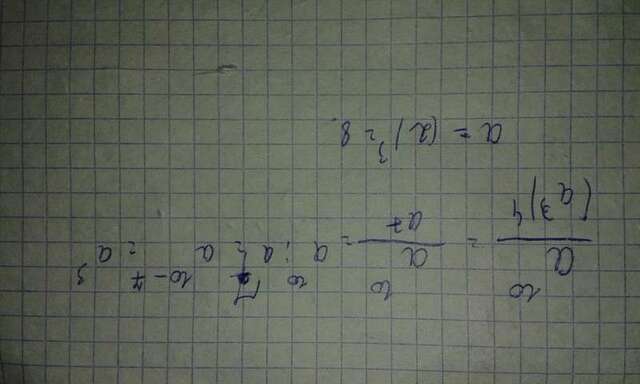 a¹⁰/(a³)⁴ = a¹⁰/a⁷ = a¹⁰ : a⁷ = a¹⁰⁻⁷ = a³
a = (2)³ = 8